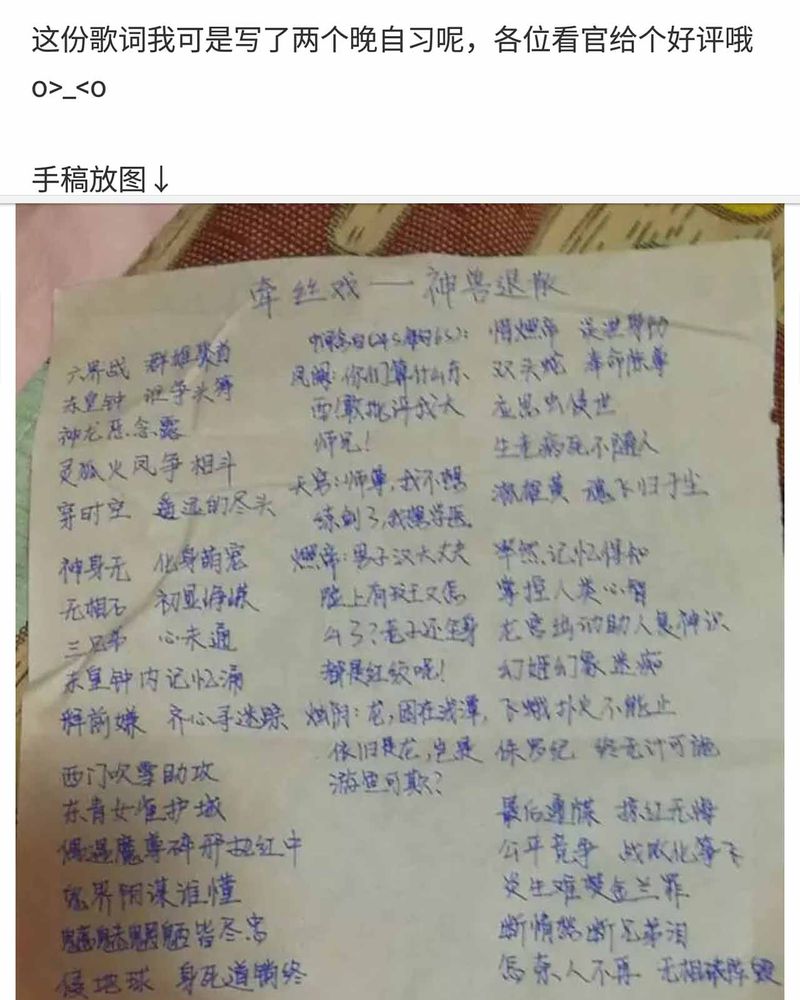 这份歌词我可是写了两个晚自习呢，各位看官给个好评哦
o>_<o
手稿放图↓
牵丝戏——神兽退散
六界战 群雄聚首
东皇钟 谁争头筹
神龙恶念露
灵狐火凤争相斗
穿时空 遥远的尽头
神身无 化身萌宠
无相石 初显峥嵘
三兄弟 心未通
东皇钟内记忆涌
释前嫌 齐心寻迷踪
西门吹雪助攻
东青女恒护城
偶遇魔尊碎邪劫红中
鬼界阴谋谁懂
魑魅魍魉皆尽忠
侵地球 身死道销终
凤澜：你们算什么东
西！敢批评我大
师兄！
天宫：师尊，我不想
练剑了，我想学医
燃帝：男子汉大丈夫
脸上有纹王又怎
么了？老子还全身
都是红纹呢！
烛阴：龙，困在浅潭，
依旧是龙，岂是
游鱼可欺？
惜燃帝
双头蛇 奉命
侵世
生老病死不随人
魂飞归于尘
记忆得知
掌控人类心智
龙宫出动助人复神识
幻姬幻象迷痴
飞蛾扑火不能止
侏罗纪 终无计可施
最后遭谋
公平竞争 战队化等下
炎生难焚金兰罪
断情怒断兄弟泪
怎奈人不再 无相球阵毁